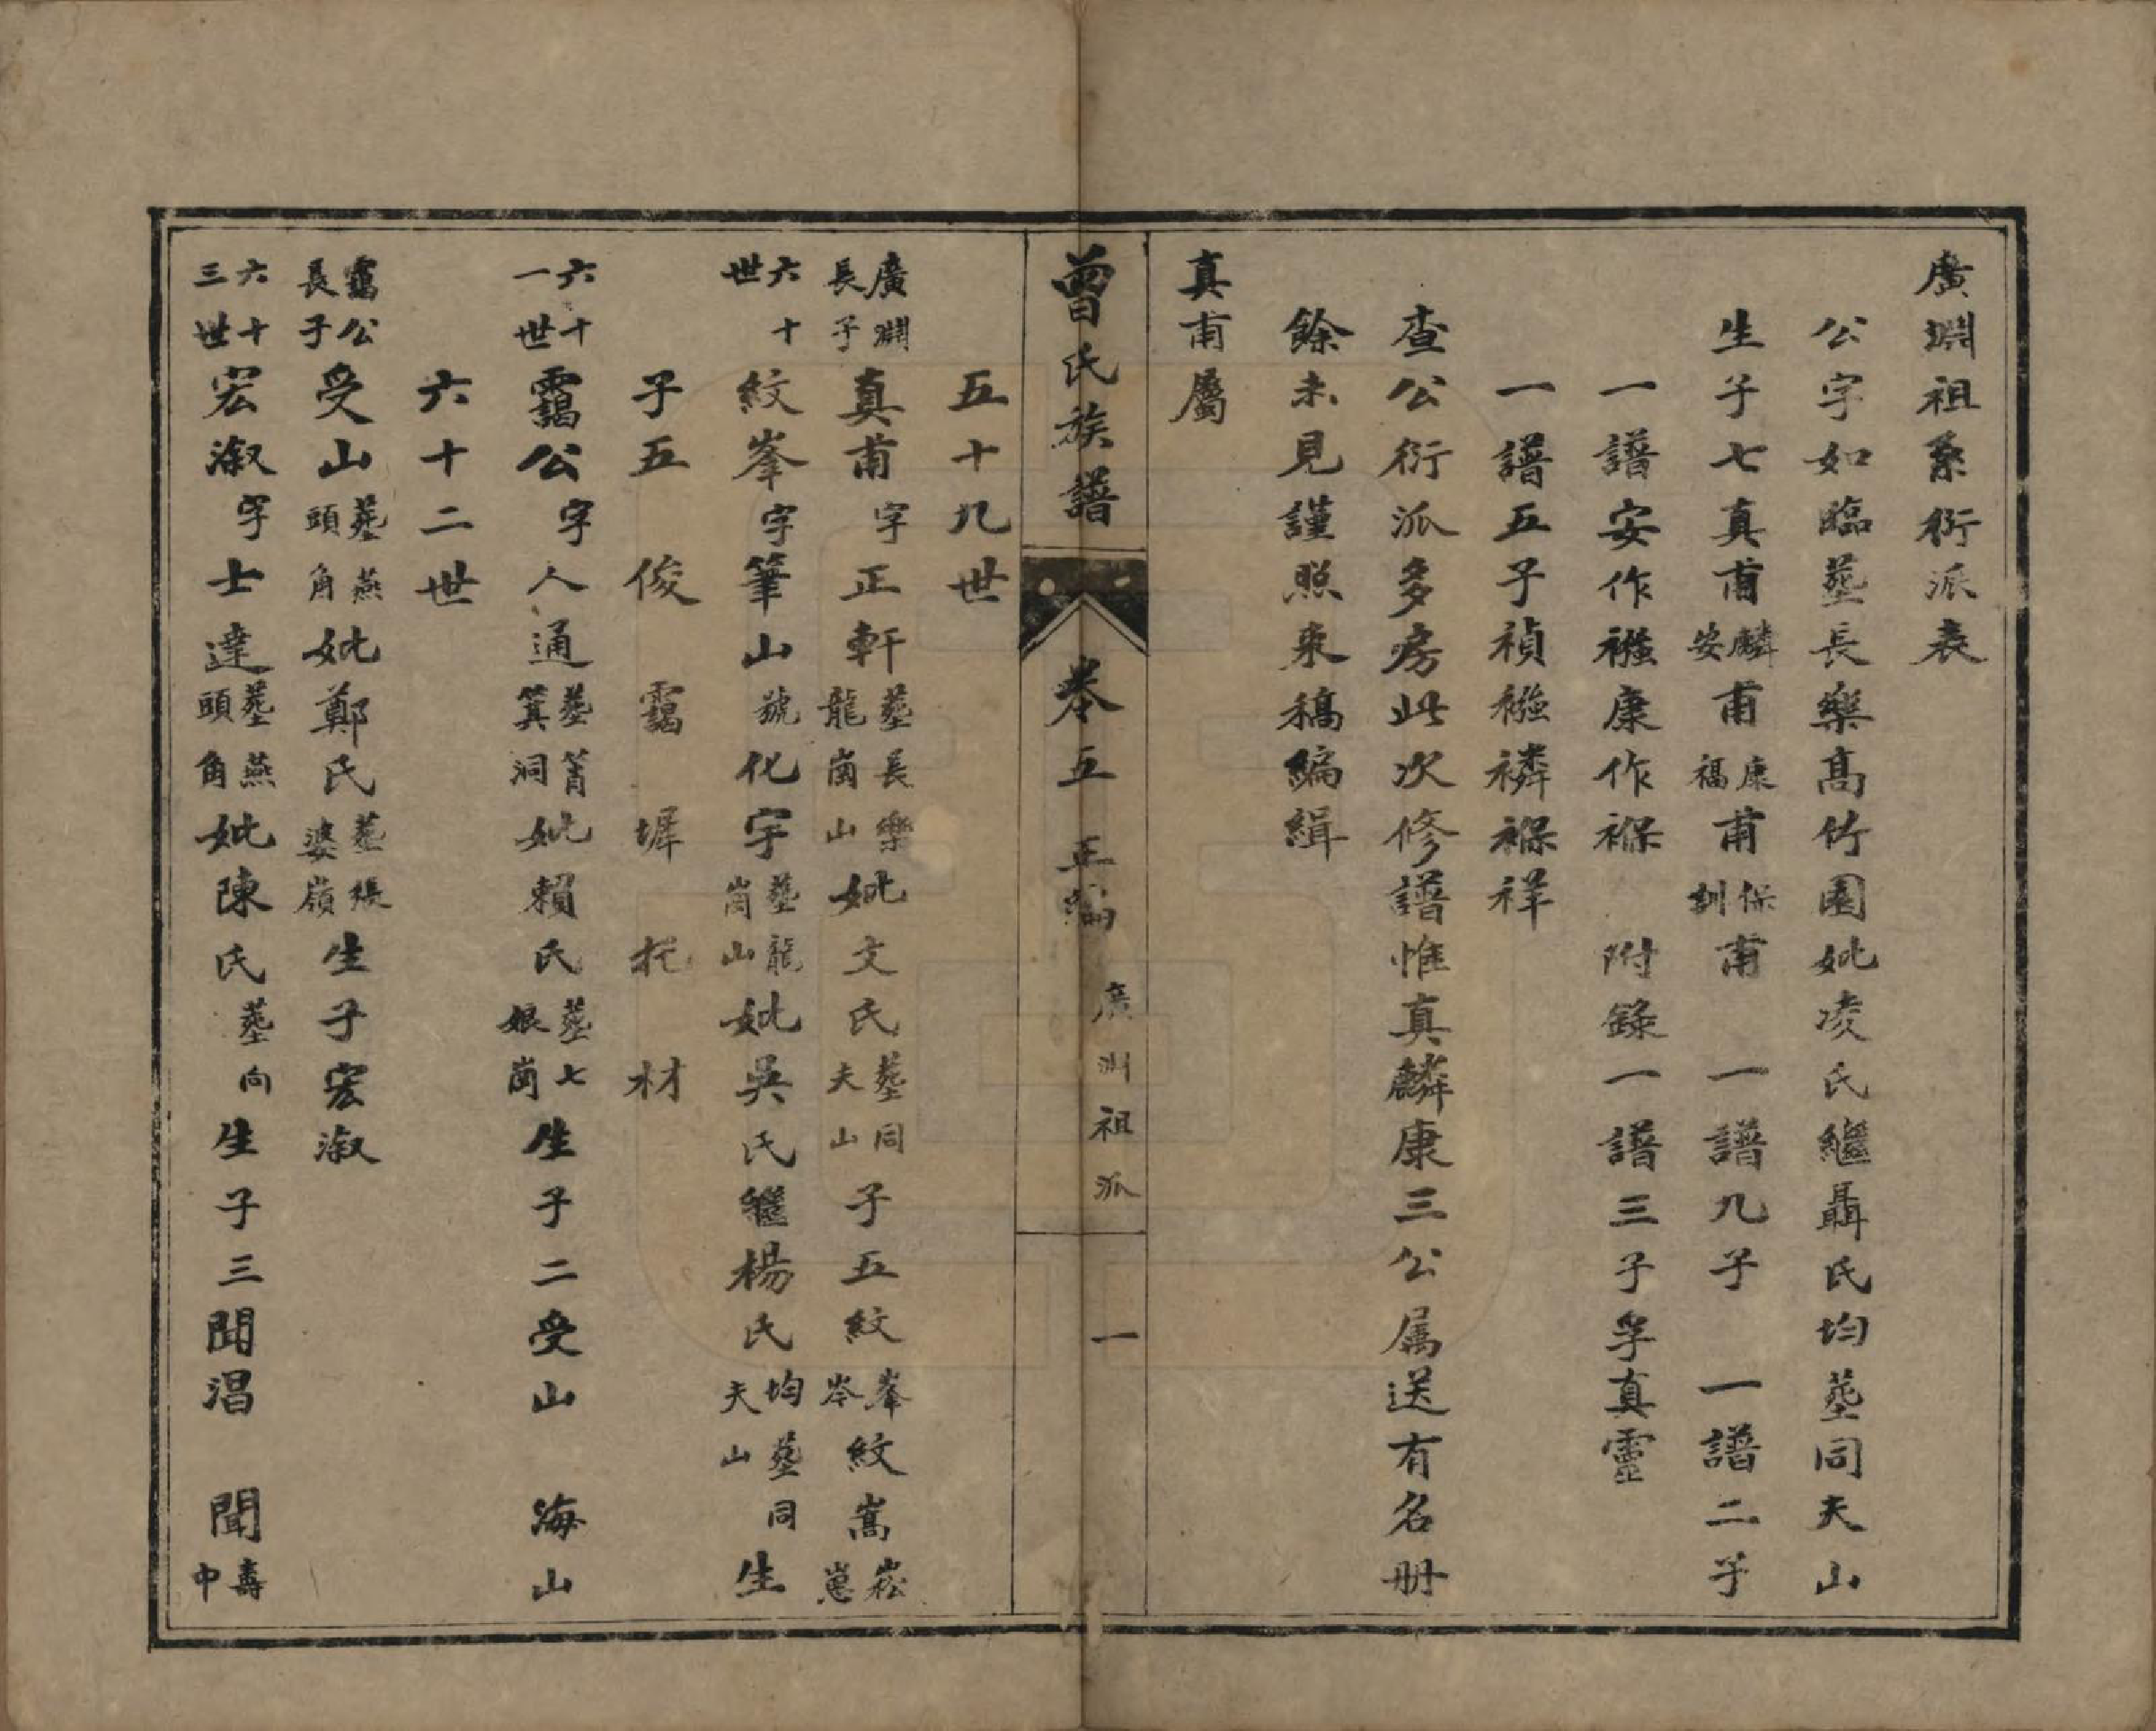 廣淵祖系衍派表
公字如臨塟長樂髙竹園妣凌氏繼聶氏均塟同夫山
生子七真甫麟安甫康福甫保釗甫 一譜九子 一譜二子
一譜安作襁康作褓 附錄一譜三子孚真靈
一譜五子禎襁禷褓祥
查公衍派多房此次修譜惟真麟康三公属送有名册
餘未見謹照來稿編緝
真甫屬
曾氏族譜 卷五 正編 廣淵祖派 一
五十九世
廣淵長子真甫字正軒塟長樂龍崗山妣文氏塟同夫山子五紋峯岺紋嵩崧崽
六十世紋峯字筆山號化宇塟龍崗山妣吳氏繼楊氏均塟同夫山生
子五 俊 靄 墀 托 材
六十一世靄公字人通塟筲箕洞妣賴氏塟七娘崗生子二受山 海山
六十二世
靄公長子受山塟燕頭角妣鄭氏塟張婆嶺生子宏淑
六十三世宏淑字士達塟燕頭角妣陳氏塟向生子三聞淐 聞壽中